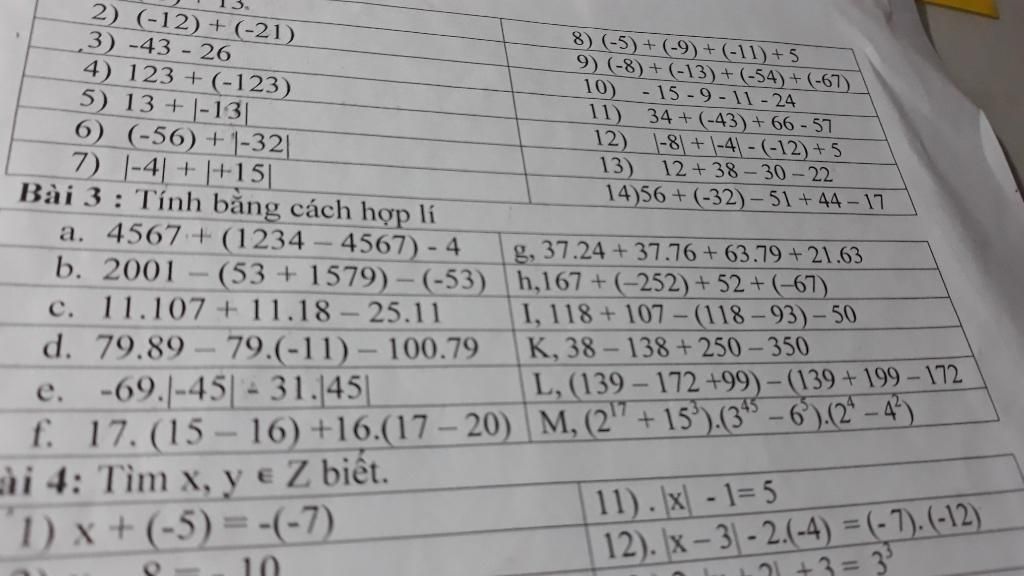 13.
2) (-12) + (-21)
3) -43 - 26
4) 123 + (-123)
5) 13 + |-13|
6) (-56) + |-32|
7) |-4| + |+15|
8) (-5) + (-9) + (-11) + 5
9) (-8) + (-13) + (-54) + (-67)
10) - 15 - 9 - 11 - 24
11) 34 + (-43) + 66 - 57
12) |-8| + |-4| - (-12) + 5
13) 12 + 38 – 30 – 22
14)56 + (-32) – 51 + 44 – 17
Bài 3 : Tính bằng cách hợp lí
a. 4567 + (1234 – 4567) - 4
b. 2001 – (53 + 1579) – (-53)
c. 11.107 + 11.18 – 25.11
d. 79.89 – 79.(-11) – 100.79
e. -69.|-45| - 31.|45|
f. 17. (15 – 16) +16.(17 – 20)
g, 37.24 + 37.76 + 63.79 + 21.63
h,167 + (–252) + 52 + (–67)
I, 118 + 107 – (118 – 93) – 50
K, 38 – 138 + 250 – 350
L, (139 – 172 +99) – (139 + 199 – 172
M, (2¹⁷ + 15³).(3⁴⁵ – 6⁵).(2⁴ – 4²)
ài 4: Tìm x, y ∈ Z biết.
1) x + (-5) = -(-7)
8 = - 10
11) . |x| - 1= 5
12). |x – 3| - 2.(-4) = (- 7). (-12)
+ 3 = 3³